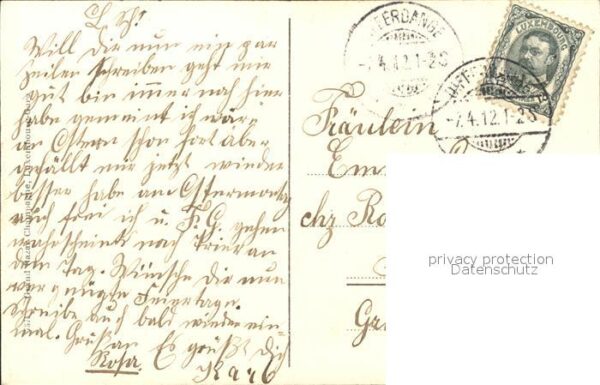 L. Sch!
Will Dir nun ein par
Zeilen schreiben geht mir
gut bin immer noch hier
habe gemeint ich wäre
an Ostern schon fort aber
gefällt mir jetzt wieder
besser habe am Ostermontag
auch frei ich u. F. G. gehen
wahrscheint nach Trier an
dem Tag. Wünsche Dir nun
vergnügte Feiertage.
schreibe auch bald wieder ein-
mal. Gruß an Es grüßt Dich
Rosa.
DIFFERDANGE
-7.4.12.1-2S
LUXEMBOURG
DIFFERDANGE
-7.4.12.1-2S
Fräulein
Em
chz Ro
Gr
privacy protection
Datenschutz